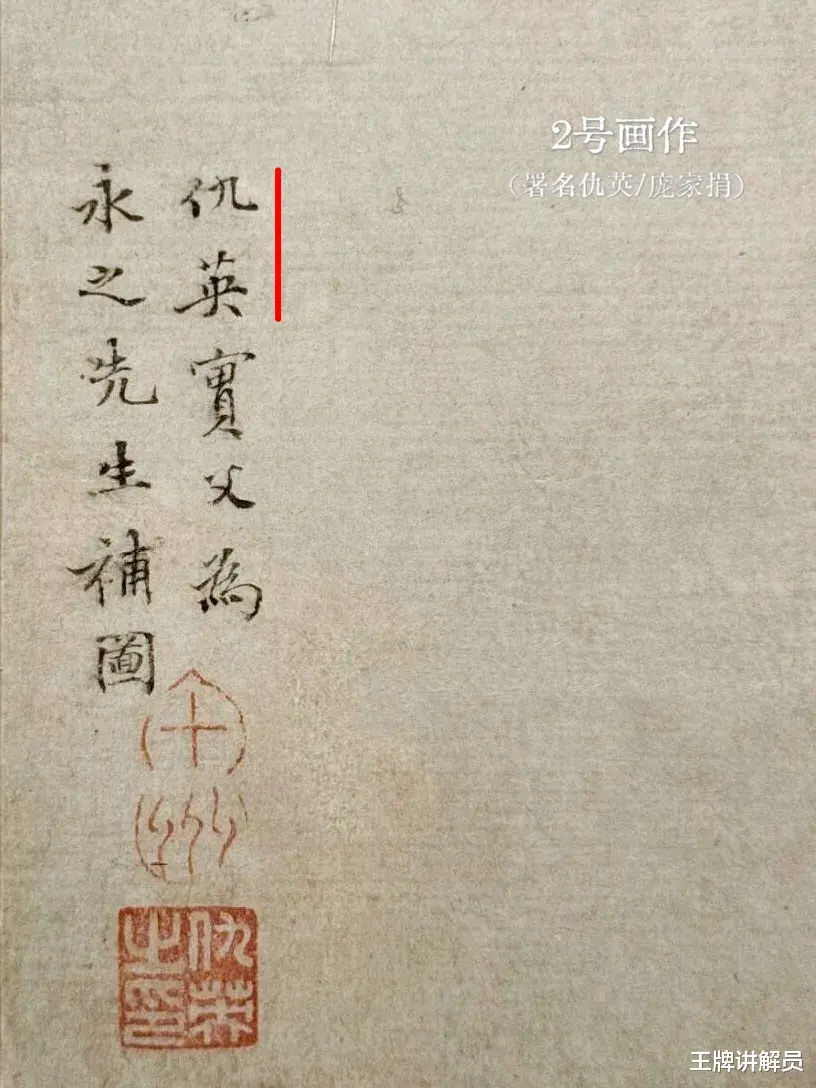 2号画作
（署名仇英/庞家捐）
仇英實父為
永之先生補圖
十州
仇英之印
王牌讲解员